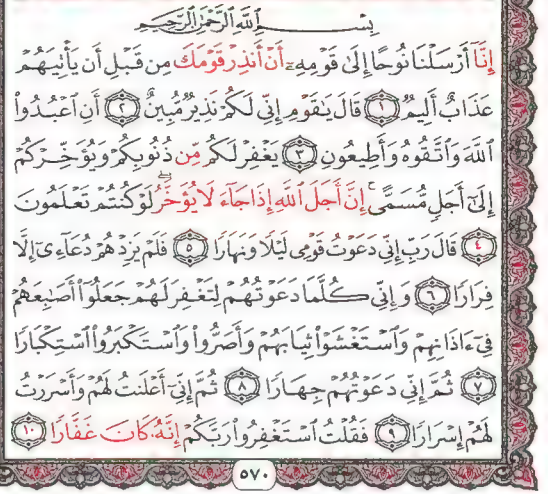 بِسْمِ ٱللَّهِ ٱلرَّحْمَٰنِ ٱلرَّحِيمِ
إِنَّآ أَرْسَلْنَا نُوحًا إِلَىٰ قَوْمِهِۦٓ أَنْ أَنذِرْ قَوْمَكَ مِن قَبْلِ أَن يَأْتِيَهُمْ
عَذَابٌ أَلِيمٌ ١ قَالَ يَٰقَوْمِ إِنِّى لَكُمْ نَذِيرٌ مُّبِينٌ ٢ أَنِ ٱعْبُدُوا۟
ٱللَّهَ وَٱتَّقُوهُ وَأَطِيعُونِ ٣ يَغْفِرْ لَكُم مِّن ذُنُوبِكُمْ وَيُؤَخِّرْكُمْ
إِلَىٰٓ أَجَلٍ مُّسَمًّى ۚ إِنَّ أَجَلَ ٱللَّهِ إِذَا جَآءَ لَا يُؤَخَّرُ ۖ لَوْ كُنتُمْ تَعْلَمُونَ
٤ قَالَ رَبِّ إِنِّى دَعَوْتُ قَوْمِى لَيْلًا وَنَهَارًا ٥ فَلَمْ يَزِدْهُمْ دُعَآءِىٓ إِلَّا
فِرَارًا ٦ وَإِنِّى كُلَّمَا دَعَوْتُهُمْ لِتَغْفِرَ لَهُمْ جَعَلُوٓا۟ أَصَٰبِعَهُمْ
فِىٓ ءَاذَانِهِمْ وَٱسْتَغْشَوْا۟ ثِيَابَهُمْ وَأَصَرُّوا۟ وَٱسْتَكْبَرُوا۟ ٱسْتِكْبَارًا
٧ ثُمَّ إِنِّى دَعَوْتُهُمْ جِهَارًا ٨ ثُمَّ إِنِّىٓ أَعْلَنتُ لَهُمْ وَأَسْرَرْتُ
لَهُمْ إِسْرَارًا ٩ فَقُلْتُ ٱسْتَغْفِرُوا۟ رَبَّكُمْ إِنَّهُۥ كَانَ غَفَّارًا ١٠
٥٧٠